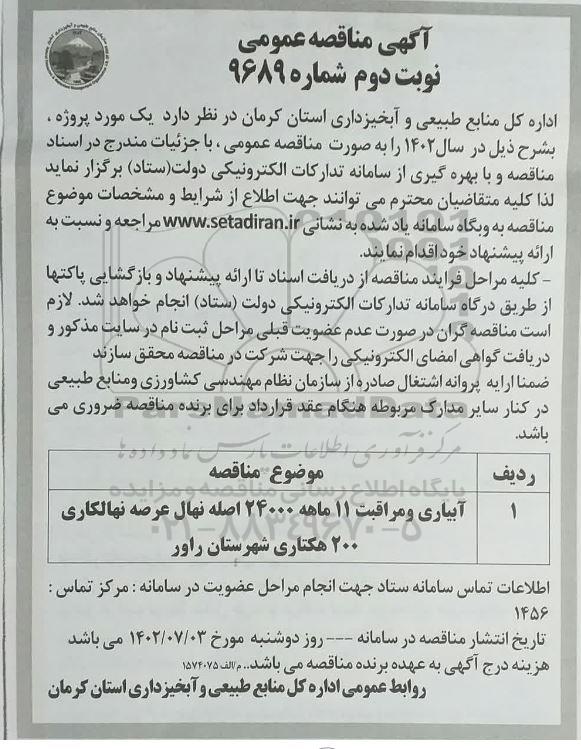 آگهی مناقصه عمومی
نوبت دوم شماره ۹۶۸۹
اداره کل منابع طبیعی و آبخیزداری استان کرمان در نظر دارد یک مورد پروژه ،
بشرح ذیل در سال ۱۴۰۲ را به صورت مناقصه عمومی ، با جزئیات مندرج در اسناد
مناقصه و با بهره گیری از سامانه تدارکات الکترونیکی دولت(ستاد) برگزار نماید
لذا کلیه متقاضیان محترم می توانند جهت اطلاع از شرایط و مشخصات موضوع
مناقصه به وبگاه سامانه یاد شده به نشانی www.setadiran.ir مراجعه و نسبت به
ارائه پیشنهاد خود اقدام نمایند.
- کلیه مراحل فرایند مناقصه از دریافت اسناد تا ارائه پیشنهاد و بازگشایی پاکتها
از طریق درگاه سامانه تدارکات الکترونیکی دولت (ستاد) انجام خواهد شد. لازم
است مناقصه گران در صورت عدم عضویت قبلی مراحل ثبت نام در سایت مذکور و
دریافت گواهی امضای الکترونیکی را جهت شرکت در مناقصه محقق سازند
ضمنا ارایه پروانه اشتغال صادره از سازمان نظام مهندسی کشاورزی ومنابع طبیعی
در کنار سایر مدارک مربوطه هنگام عقد قرارداد برای برنده مناقصه ضروری می
باشد.
ParsNamadData
مرکز فرآوری اطلاعات پارس نماد داده ها
پایگاه اطلاع رسانی مناقصه و مزایده
۰۲۱-۸۸۳۴۹۶۷۰-۵
ردیف موضوع مناقصه
۱ آبیاری ومراقبت ۱۱ ماهه ۲۴۰۰۰ اصله نهال عرصه نهالکاری
۲۰۰ هکتاری شهرستان راور
اطلاعات تماس سامانه ستاد جهت انجام مراحل عضویت در سامانه : مرکز تماس :
۱۴۵۶
تاریخ انتشار مناقصه در سامانه --- روز دوشنبه مورخ ۱۴۰۲/۰۷/۰۳ می باشد
هزینه درج آگهی به عهده برنده مناقصه می باشد.. م/الف ۱۵۷۴۰۷۵
روابط عمومی اداره کل منابع طبیعی و آبخیزداری استان کرمان